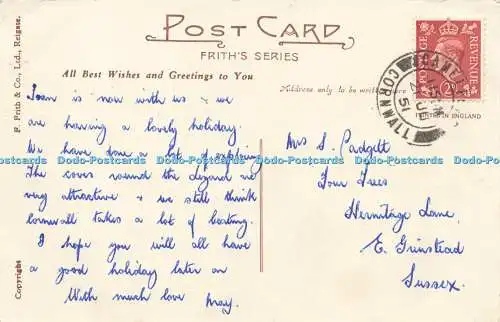 POST CARD
FRITH'S SERIES
All Best Wishes and Greetings to You
Address only to be written
POSTAGE REVENUE
CORNWALL
51
IN ENGLAND
F. Frith & Co., Ltd., Reigate.
Copyright
Joan is now with us & we
are having a lovely holiday.
We have done a lot of exploring
The coves round the Lizard are
very attractive & we still think
Cornwall takes a lot of beating.
I hope you will all have
a good holiday later on
With much love May.
Mrs S. Padgett
Four Trees
Hermitage Lane,
E. Grinstead
Sussex.
Dodo-Postcards Dodo-Postcards Dodo-Postcards Dodo-Postcards Dodo-Postcards Dodo-Postcards Dodo-Postcards